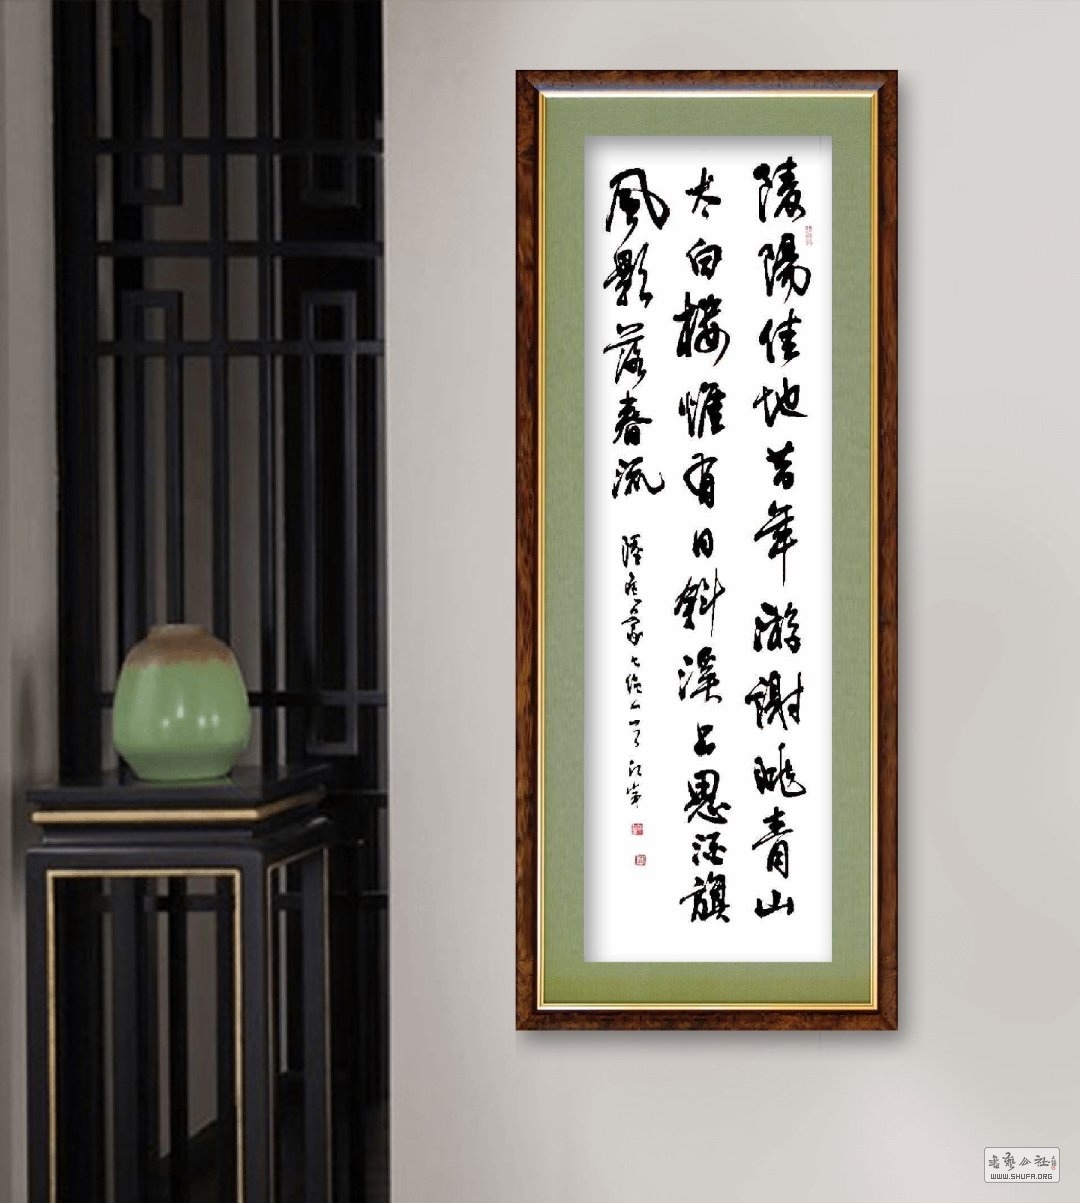 陵陽佳地昔年游謝朓青山
太白樓惟有日斜溪上思酒旗
風影落春流
陸龜蒙七绝一首
书艺公社
WWW.SHUFA.ORG